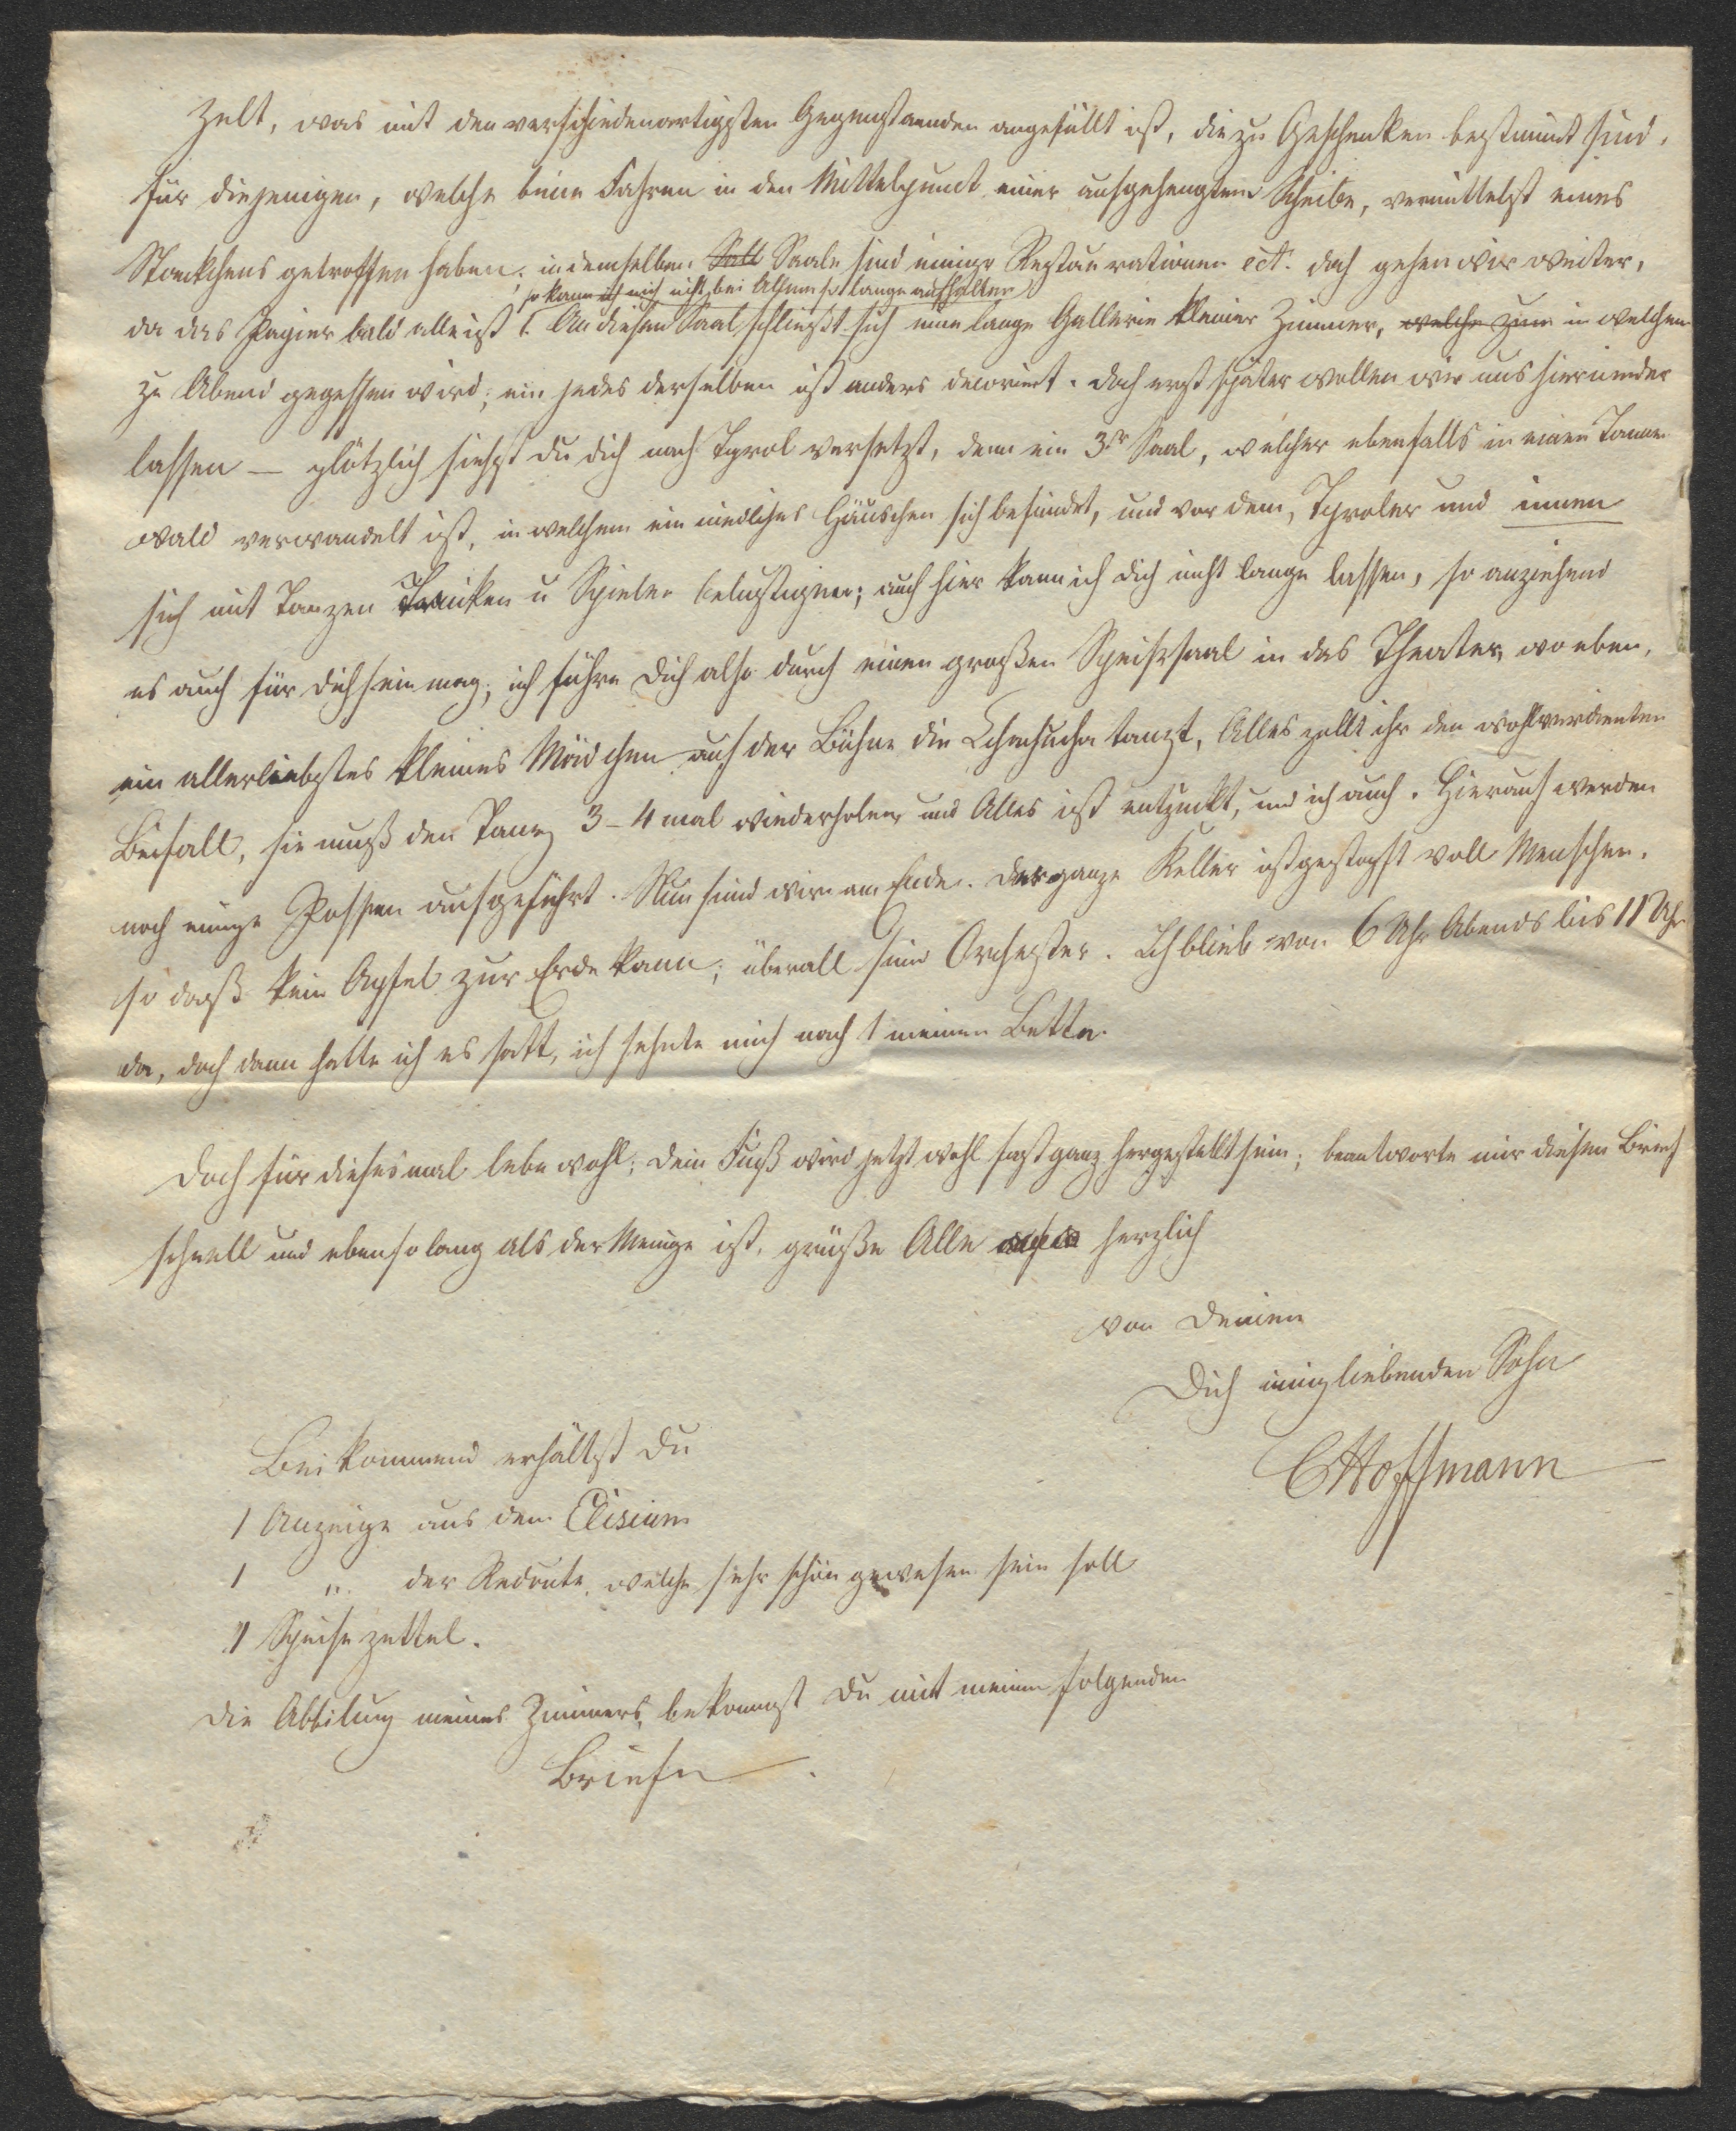 Zelt, was mit den verschiedenartigsten Gegenstaenden angefüllt ist, die zu Geschenken bestimmt sind,
für diejenigen, welche beim Fahren in den Mittelpunct einer aufgehengten Scheibe, vermittelst eines
Stoeckchens getroffen haben; in demselben Saale sind einige Restaurationen ect. doch gehen wir weiter,
so kann ich mich nicht bei Allem so lange aufhalten
da das Papier bald alle ist. An diesen Saal schliesst sich eine lange Gallerie kleiner Zimmer, welche zum in welchen
zu Abend gegessen wird; ein jedes derselben ist anders decorirt. doch erst später wollen wir uns hier nieder
lassen — plötzlich siehst du dich nach Tyrol versetzt, denn ein 3r Saal, welcher ebenfalls in einen Tannen
wald verwandelt ist, in welchem ein niedliches Häuschen sich befindet, und vor dem, Tyroler und innen
sich mit Tanzen Trinken u Spielen belustigen; auch hier kann ich dich nicht lange lassen, so anziehend
es auch für dich sein mag; ich führe dich also durch einen großen Speisesaal in das Theater, wo eben,
ein allerliebstes kleines Mädchen auf der Bühne die Cachucha tanzt, Alles zollt ihr den wohlverdienten
Beifall, sie muß den Tanz 3–4 mal wiederholen und Alles ist entzückt, und ich auch. Hierauf werden
noch einige Possen aufgeführt. Nun sind wir am Ende. der ganze Keller ist gestopft voll Menschen,
so dass kein Apfel zur Erde kann; überall sind Orchester. Ich blieb von 6 Uhr Abends bis 11 Uhr
da, doch dann hatte ich es satt, ich sehnte mich nach meinem Bette.
Doch für diesesmal lebe wohl; dein Fuß wird jetzt wohl fast ganz hergestellt sein; beantworte mir diesen Brief
schnell und ebenso lang als der Meinige ist, grüße Alle herzlich
von deinem
Dich innigliebenden Sohn
CHoffmann
Beikommend erhältst du
1 Anzeige aus dem Elisium
1 " der Redoute, welche sehr schön gewesen sein soll
1 Speisezettel.
die Abbilung meines Zimmers, bekommst du mit meinem folgenden
Briefe.